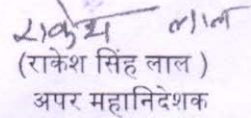 राकेश लाल
(राकेश सिंह लाल )
अपर महानिदेशक